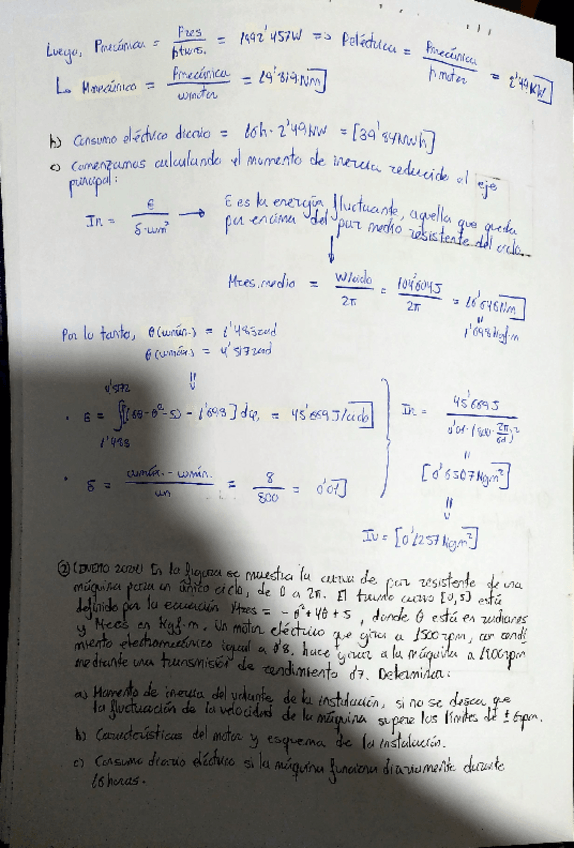 Luego, Pmecánica = Pres / ηtrans. = 1992'457W => Peléctrica = Pmecánica / ηmotor = 2'49KW]
L> Mmecánico = Pmecánica / ωmotor = 29'819Nm]
b) Consumo eléctrico diario = 16h · 2'49KW = [39'84KWh]
c) Comenzamos calculando el momento de inercia reducido al eje
principal:
IR = E / δ·ωm² → E es la energía fluctuante, aquella que queda
por encima del par medio resistente del ciclo.
Mres.medio = Wciclo / 2π = 104'604J / 2π = 16'648Nm]
1'698Kgf·m
Por lo tanto, θ(ωmín.) = 1'483rad
θ(ωmáx.) = 4'517rad
· E = ∫ [(6θ-θ²-5) - 1'698] dφ = 45'669J/ciclo]
4'5172
1'483
IR = 45'669J / 0'01·(800·2π/60)²
· δ = ωmáx. - ωmín. / ωm = 8 / 800 = 0'01]
[0'6507Kgm²]
IV = [0'1257Kgm²]
② (ENERO 2020) En la figura se muestra la curva de par resistente de una
máquina para un único ciclo, de 0 a 2π. El tramo curvo [0,5] está
definido por la ecuación Mres = -θ²+4θ+5, donde θ está en radianes
y Mres en Kgf·m. Un motor eléctrico que gira a 1500rpm, con rendi
miento electromecánico igual a 0'8, hace girar a la máquina a 1200rpm
mediante una transmisión de rendimiento 0'7. Determinar:
a) Momento de inercia del volante de la instalación, si no se desea que
la fluctuación de la velocidad de la máquina supere los límites de ±6rpm.
b) Características del motor y esquema de la instalación.
c) Consumo diario eléctrico si la máquina funciona diariamente durante
16 horas.